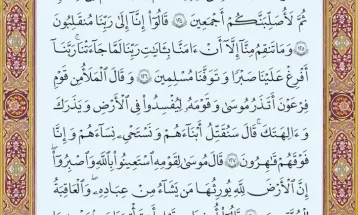 ثُمَّ لَأُصَلِّبَنَّكُمْ أَجْمَعِينَ ١٢٤ قَالُوٓا۟ إِنَّآ إِلَىٰ رَبِّنَا مُنقَلِبُونَ
١٢٥ وَمَا تَنقِمُ مِنَّآ إِلَّآ أَنْ ءَامَنَّا بِـَٔايَـٰتِ رَبِّنَا لَمَّا جَآءَتْنَا ۚ رَبَّنَآ
أَفْرِغْ عَلَيْنَا صَبْرًا وَتَوَفَّنَا مُسْلِمِينَ ١٢٦ وَقَالَ ٱلْمَلَأُ مِن قَوْمِ
فِرْعَوْنَ أَتَذَرُ مُوسَىٰ وَقَوْمَهُۥ لِيُفْسِدُوا۟ فِى ٱلْأَرْضِ وَيَذَرَكَ
وَءَالِهَتَكَ ۚ قَالَ سَنُقَتِّلُ أَبْنَآءَهُمْ وَنَسْتَحْىِۦ نِسَآءَهُمْ وَإِنَّا
فَوْقَهُمْ قَـٰهِرُونَ ١٢٧ قَالَ مُوسَىٰ لِقَوْمِهِ ٱسْتَعِينُوا۟ بِٱللَّهِ وَٱصْبِرُوٓا۟ ۖ
إِنَّ ٱلْأَرْضَ لِلَّهِ يُورِثُهَا مَن يَشَآءُ مِنْ عِبَادِهِۦ ۖ وَٱلْعَـٰقِبَةُ